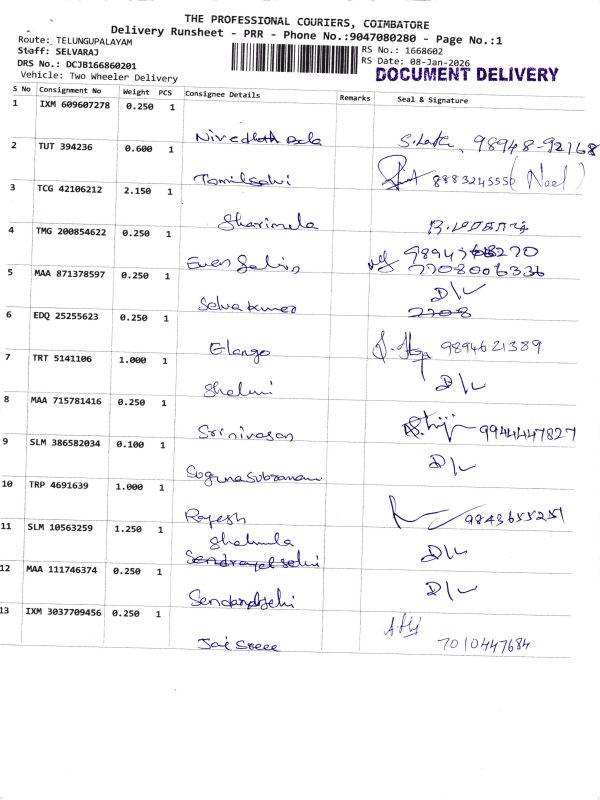 THE PROFESSIONAL COURIERS, COIMBATORE
Delivery Runsheet - PRR - Phone No.:9047080280 - Page No.:1
Route: TELUNGUPALAYAM
Staff: SELVARAJ
DRS No.: DCJB166860201
Vehicle: Two Wheeler Delivery
RS No.: 1668602
RS Date: 08-Jan-2026
DOCUMENT DELIVERY
S No Consignment No Weight PCS Consignee Details Remarks Seal & Signature
1 IXM 609607278 0.250 1
S.Latha, 98948-92168
2 TUT 394236 0.600 1
Tamilselvi 8883245550 (Noel)
3 TCG 42106212 2.150 1
Sharimela
4 TMG 200854622 0.250 1
7708006336
5 MAA 871378597 0.250 1
D/L
Selvakumar 7708
6 EDQ 25255623 0.250 1
Elango 9894621389
7 TRT 5141106 1.000 1
Shalini D/L
8 MAA 715781416 0.250 1
Srinivasan 9944447827
9 SLM 386582034 0.100 1
D/L
10 TRP 4691639 1.000 1
Rajesh 9843655251
11 SLM 10563259 1.250 1
Shakmila D/L
12 MAA 111746374 0.250 1
D/L
13 IXM 3037709456 0.250 1
Jai Sree 7010447684